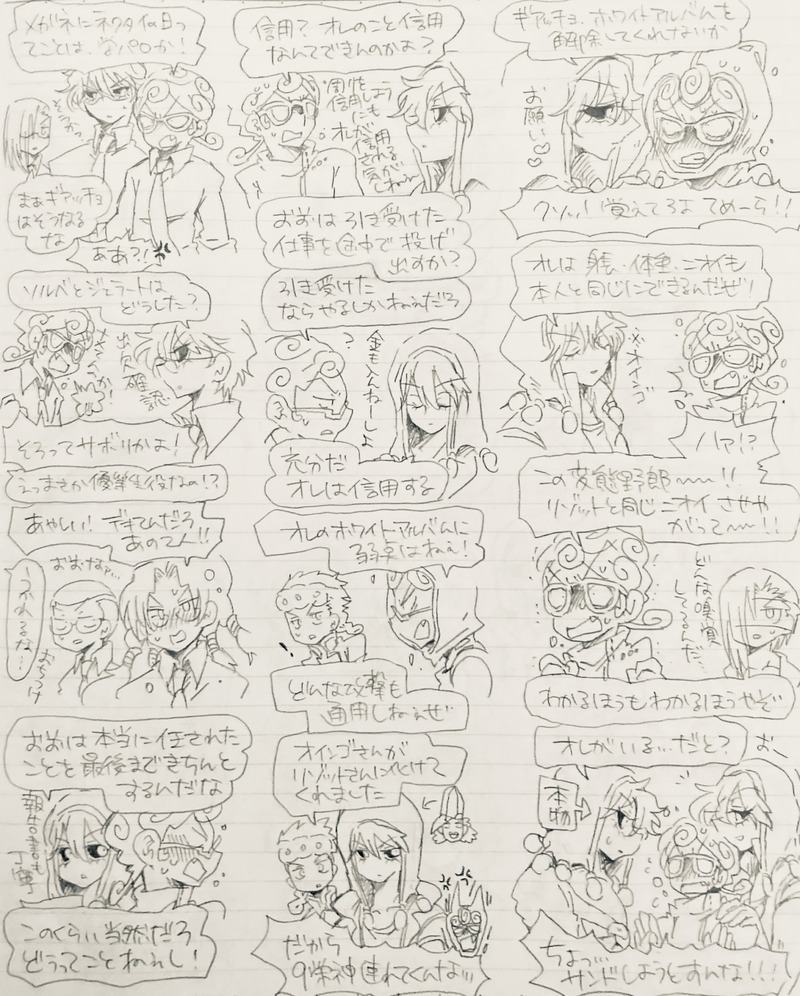 ギアッチョ、ホワイトアルバムを
解除してくれないか
お願い
クソッ！覚えてろよ てめーら！！
オレは身長・体重・ニオイも
本人と同じにできるんだぜ！
※オインゴ
ハァ！？
この変態野郎〜〜！！
リゾットと同じニオイさせや
がって〜〜！！
どんな嗅覚
してるんだ…
わかるほうもわかるほうやぞ
オレがいる…だと？
お〜
本物
ちょっ…
サンドしようとすんな！！！
信用？オレのこと信用
なんてできんのかよ？
周りを
信用しよう
にも
オレが
信用
される
気が
しねぇ
おまえは引き受けた
仕事を途中で投げ
出すか？
引き受けた
ならやるしかねぇだろ
？
金もらんねーしよ
充分だ
オレは信用する
オレのホワイトアルバムに
弱点はねぇ！
どんな攻撃も
通用しねぇぜ
オインゴさんが
リゾットさんに化けて
くれました
だから
9栄神連れてくんなッ
メガネにネクタイの日っ
てことは、学パロか！
そうかっ
まぁギアッチョ
はそうなる
な
ああ？！
ソルベとジェラートは
どうした？
出欠確認
そろってサボリかよ！
えっまさか優等生役なの！？
あやしい！デキてんだろ
あの2人！！
おまえなァ…
うかれるな…
おちつけ
おまえは本当に任された
ことを最後まできちんと
するんだな
報告書も
丁寧
このくらい当然だろ
どうってことねぇし！